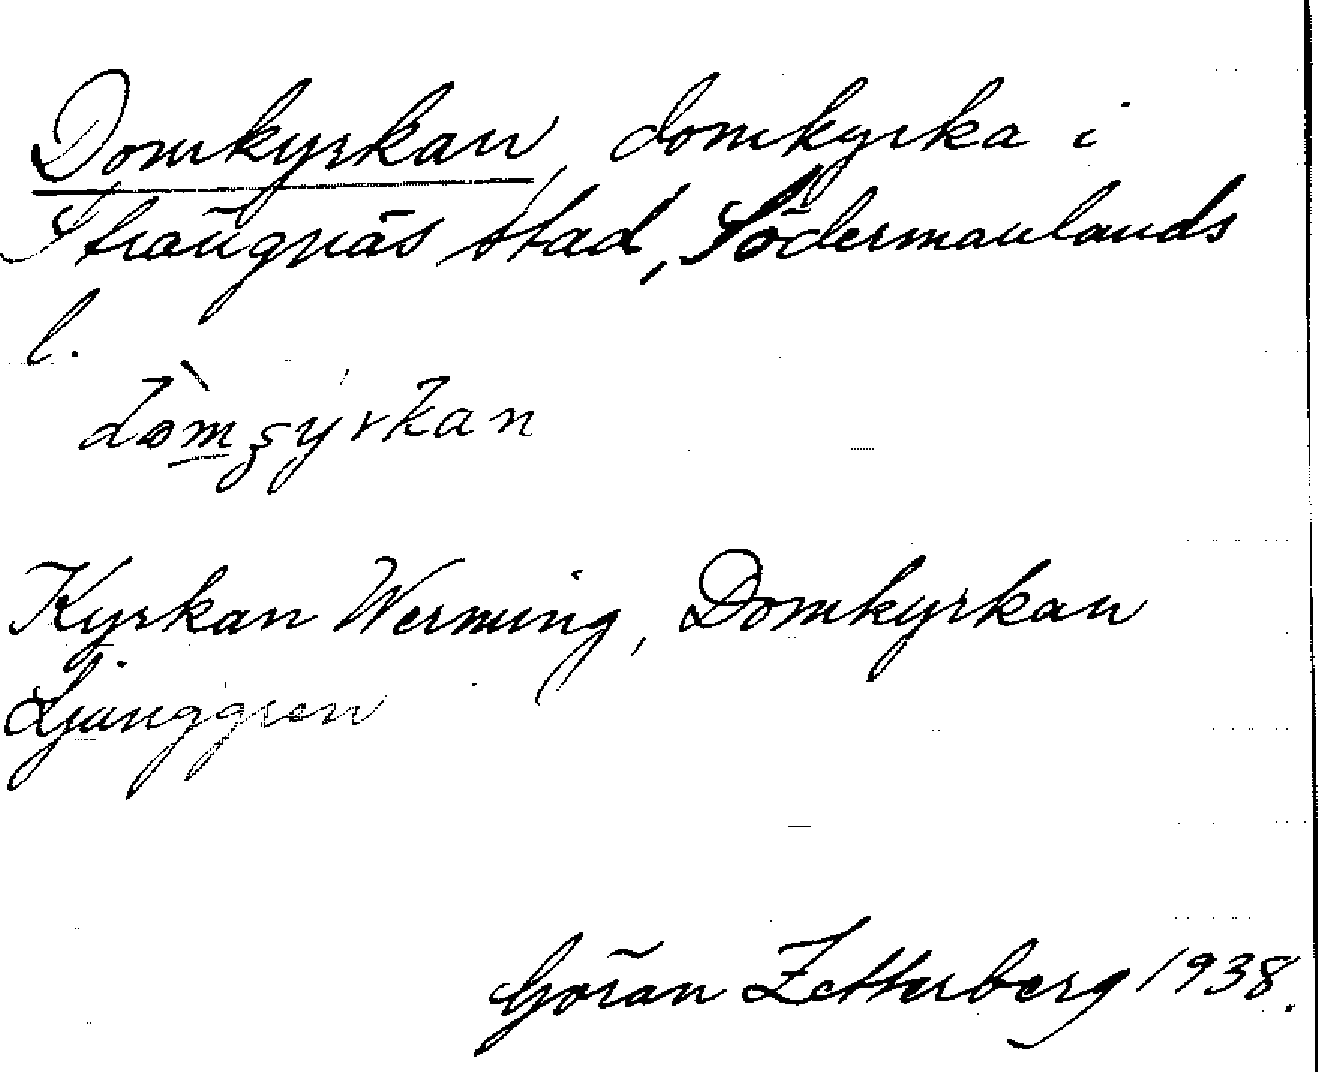 Domkyrkan, domkyrka i
Strängnäs stad, Södermanlands
l.
dòmçyrkan
Kyrkan Werming, Domkyrkan
Ljunggren
Göran Zetterberg 1938.